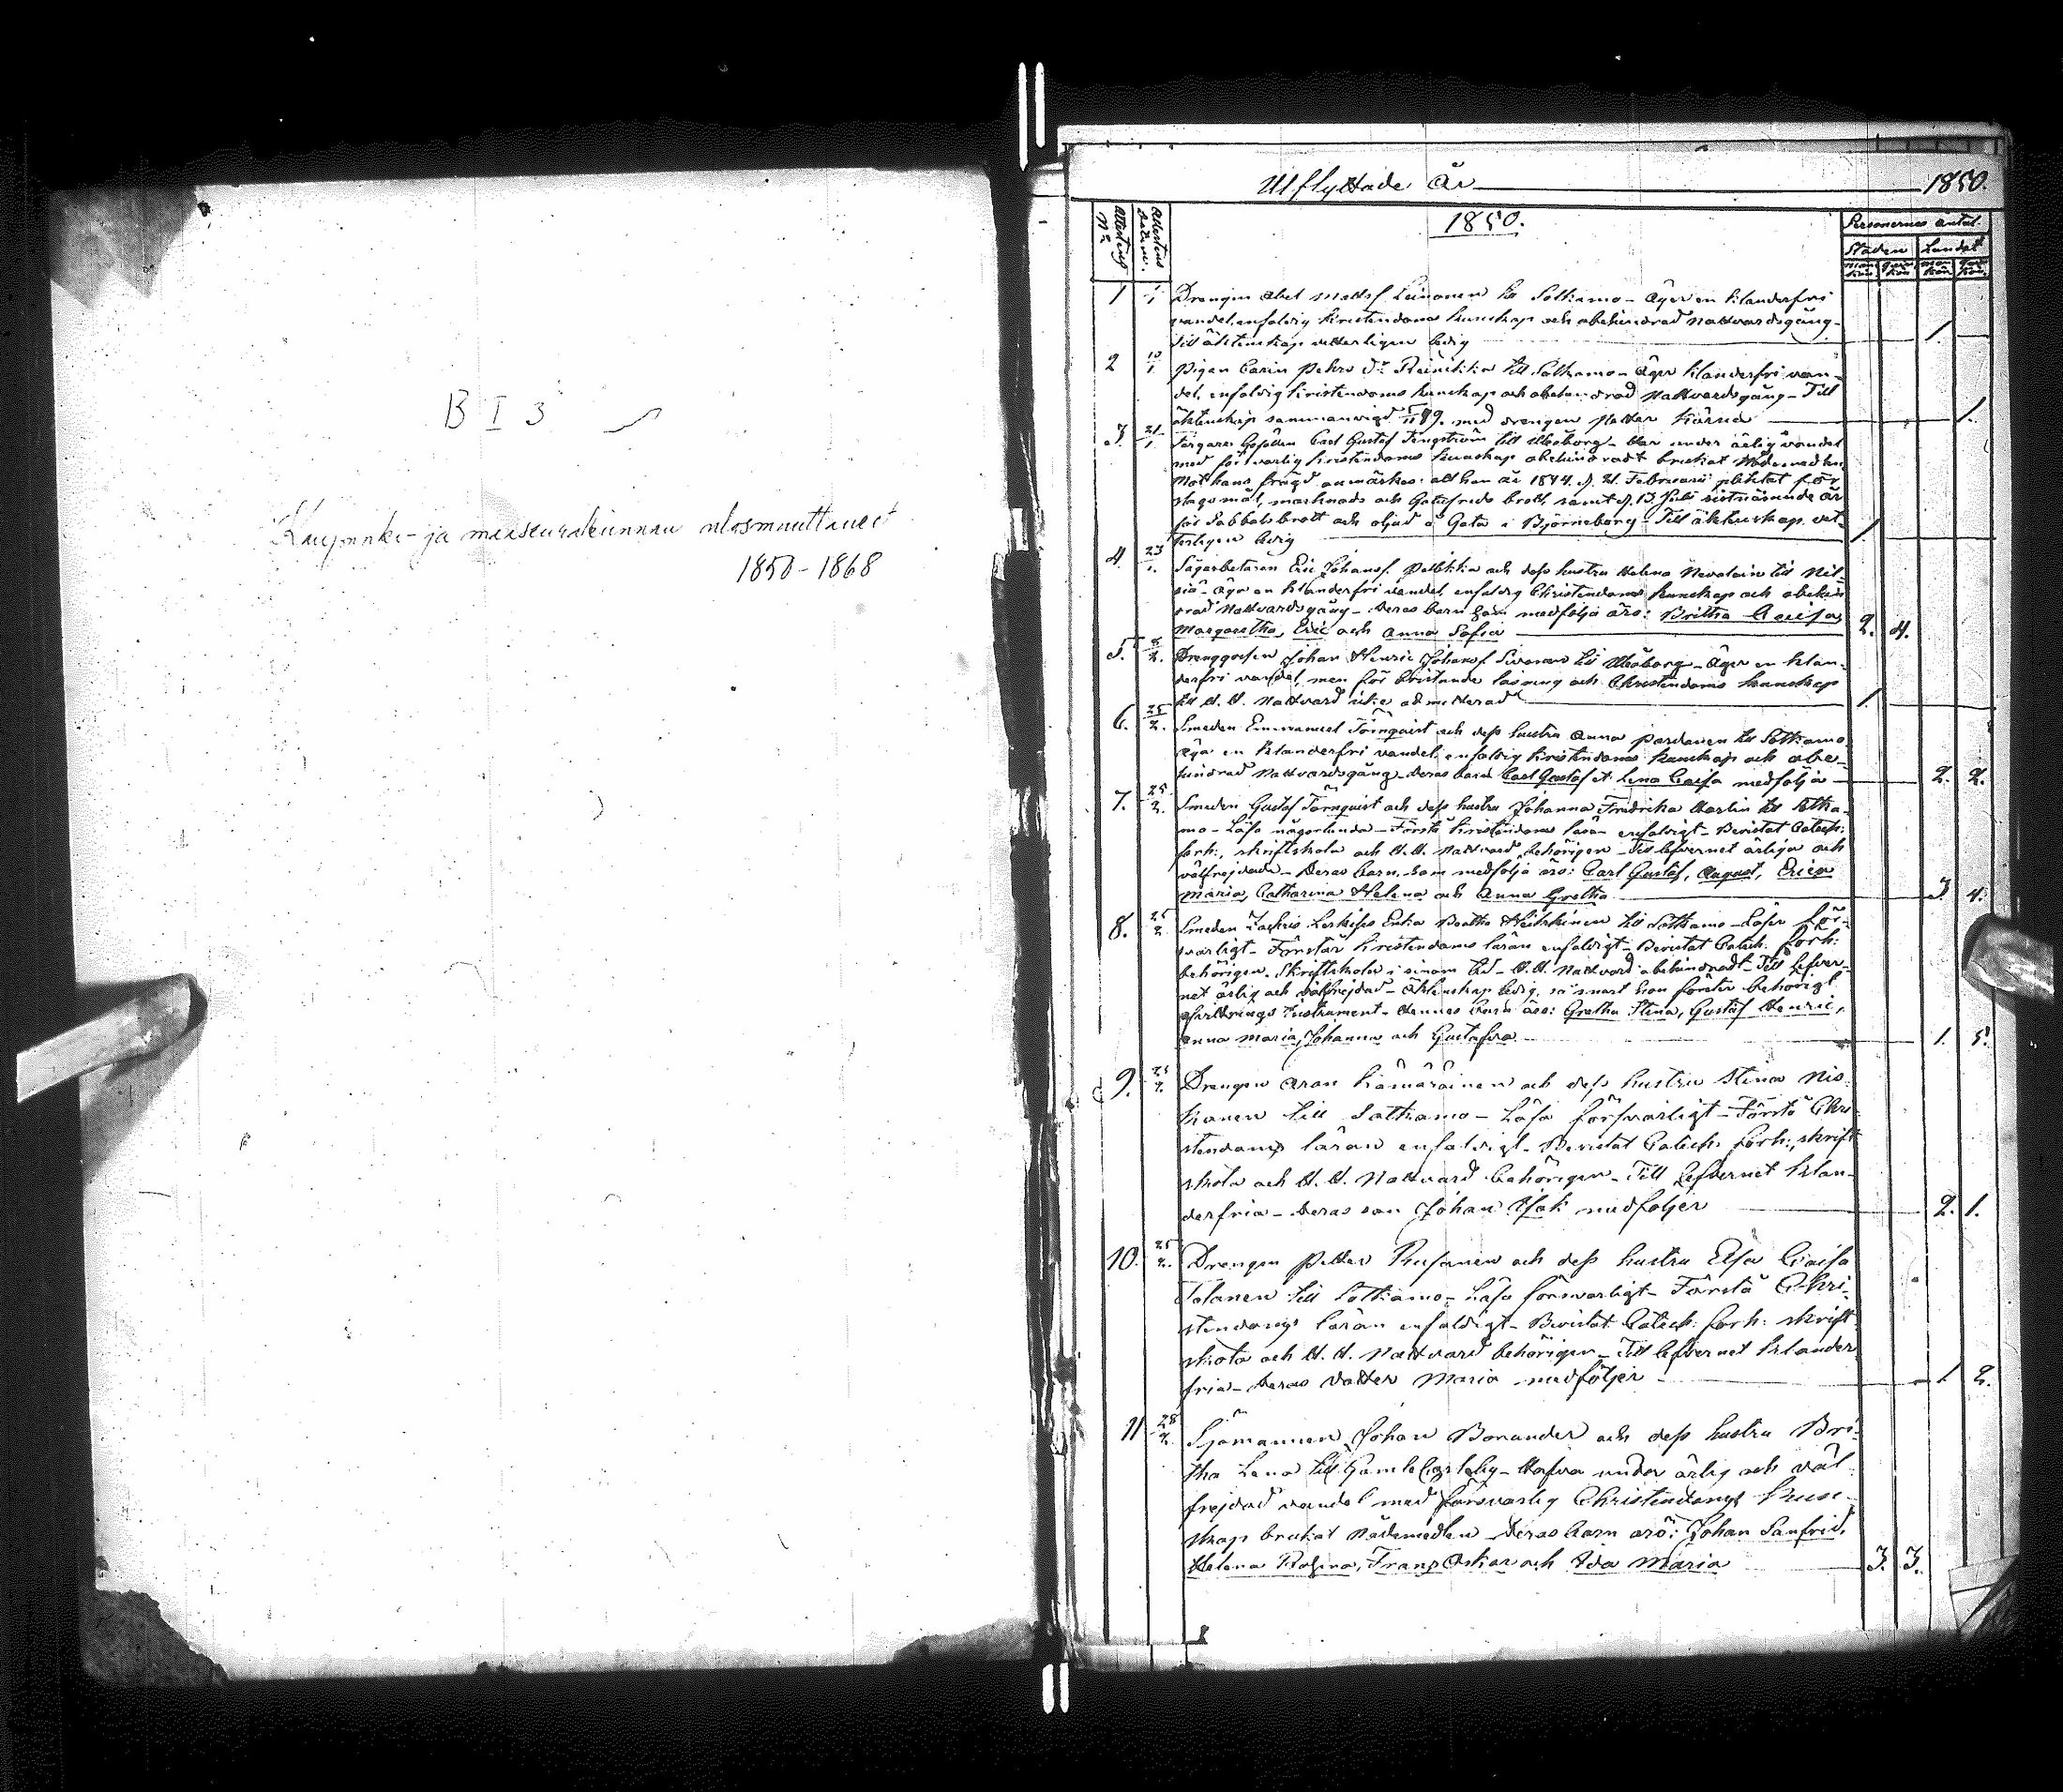 B I 3
Kaupunki- ja maaseurakunnan ulosmuuttaneet
1850-1868
Utflyttade År 1850.
Attestens No
Attestens datum.
1850.
Personernes antal.
Staden Landet
man kön qvin kön man kön qvin kön
1 1/1 Drengen Abel Matts f. Leinonen till Sotkamo - Äger en klanderfri
vandel, enfaldig kristendoms kunskap och obehindrad Nattvardsgång -
till äktenskap veterligen ledig 1.
2 10/1 Pigan Carin Pehrs dr till Sotkamo - Äger klanderfri van-
del, enfaldig kristendoms kunskap och obehindrad Nattvardsgång - Till
äktenskap sammanvigd med drengen Petter 1.
3. 21/1 Färgare Gesällen Carl Gustaf Tengström till Uleåborg - Har under ärlig vandel
med försvarlig kristendoms kunskap obehindradt brukat Nådemedlen
Mot hans frägd anmärkes: att han år 1844. d. 21. Februarii pliktat för
slagsmål, marknads och Gatufrids brott, samt d. 13 Juli sistnämnde år
för Sabbatsbrott och oljud å Gata i Björneborg - Till äktenskap vet-
terligen ledig 1
4. 23/1. Sågarbetaren Eric Johans f. och dess hustru Helena till Nil-
siä - Äga en klanderfri vandel, enfaldig Christendoms kunskap och obehin
drad Nattvardsgång - Deras barn som medfölja äro: Britha Caisa,
Margaretha, Eric och Anna Sofia 2. 4.
5. /2. Drenggossen Johan Henric Johans f. till Uleåborg - Äger en klan-
derfri vandel, men för bristande läsning och Christendoms kunskap
till H. H. Nattvard icke admitterad 1.
6. 25/2. Smeden Emmanuel Törnqvist och dess hustru Anna Pardanen till Sotkamo
Äga en klanderfri vandel, enfaldig kristendoms kunskap och obe-
hindrad Nattvardsgång - Deras barn Carl Gustaf et Lena Caisa medfölja 2. 2.
7. 25/2. Smeden Gustaf Törnquist och dess hustru Johanna Fredrika till Sotka-
mo - Läsa någorlunda - Förstå kristendoms läran enfaldigt - Bevistat Catech:
förh:, skriftskola och H. H. Nattvard behörigen - Till lefvernet ärliga och
välfrejdade - Deras barn, som medfölja äro: Carl Gustaf, August, Erica
Maria, Catharina Helena och Anna Gretha 3 4.
8. 25/2 Smeden Enka Beatha Heiskinen till Sotkamo - Läser för-
svarligt - Förstår kristendoms läran enfaldigt - Bevistat Catech. förh:
behörigen. Skriftskolan i sinom tid - H. H. Nattvard obehindradt - Till lefver-
net ärlig och välfrejdad - Äktenskap ledig, så snart hon företer behörigt
afvittrings Instrument - Hennes barn äro: Gretha Stina, Gustaf Henric,
Anna Maria, Johanna och Gustafva 1. 5.
9. 25/2. Drengen Aron Kämäräinen och dess hustru Stina Nis-
kanen till Sotkamo - Läsa försvarligt - Förstå Chri-
stendoms läran enfaldigt - Bevistat Catech: förh:, skrift
skola och H. H. Nattvard behörigen - Till Lefvernet klan-
derfria - Deras son Johan Isak medföljer 2. 1.
10. 25/2. Drengen Petter och dess hustru Elsa Caisa
Tolanen till Sotkamo - Läsa försvarligt - Förstå Chri-
stendoms läran enfaldigt - Bevistat Catech: förh: skrift
skola och H. H. Nattvard behörigen - Till lefvernet klander
fria - Deras dotter Maria medföljer 1 2.
11 28/2. Sjömannen Johan Bonander och dess hustru Bri-
tha Lena till Gamlecarleby - Hafva under ärlig och väl
frejdad vandel med försvarlig Christendoms kun-
skap brukat Nådemedlen - Deras barn äro: Johan Sanfrid,
Helena Rosina, Frans Oskar och Ida Maria 3. 3.